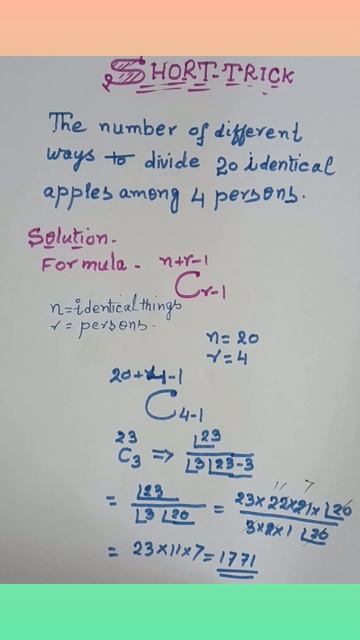 SHORT-TRICK
The number of different
ways to divide 20 identical
apples among 4 persons.
Solution.
Formula - n+r-1
C r-1
n=identical things
r = persons.
n= 20
r= 4
20+4-1
C 4-1
23
C3 => ⌊23 / ⌊3 ⌊23-3
= ⌊23 / ⌊3 ⌊20 = 23×22×21×⌊20 / 3×2×1 ⌊20
11 7
= 23×11×7=1771